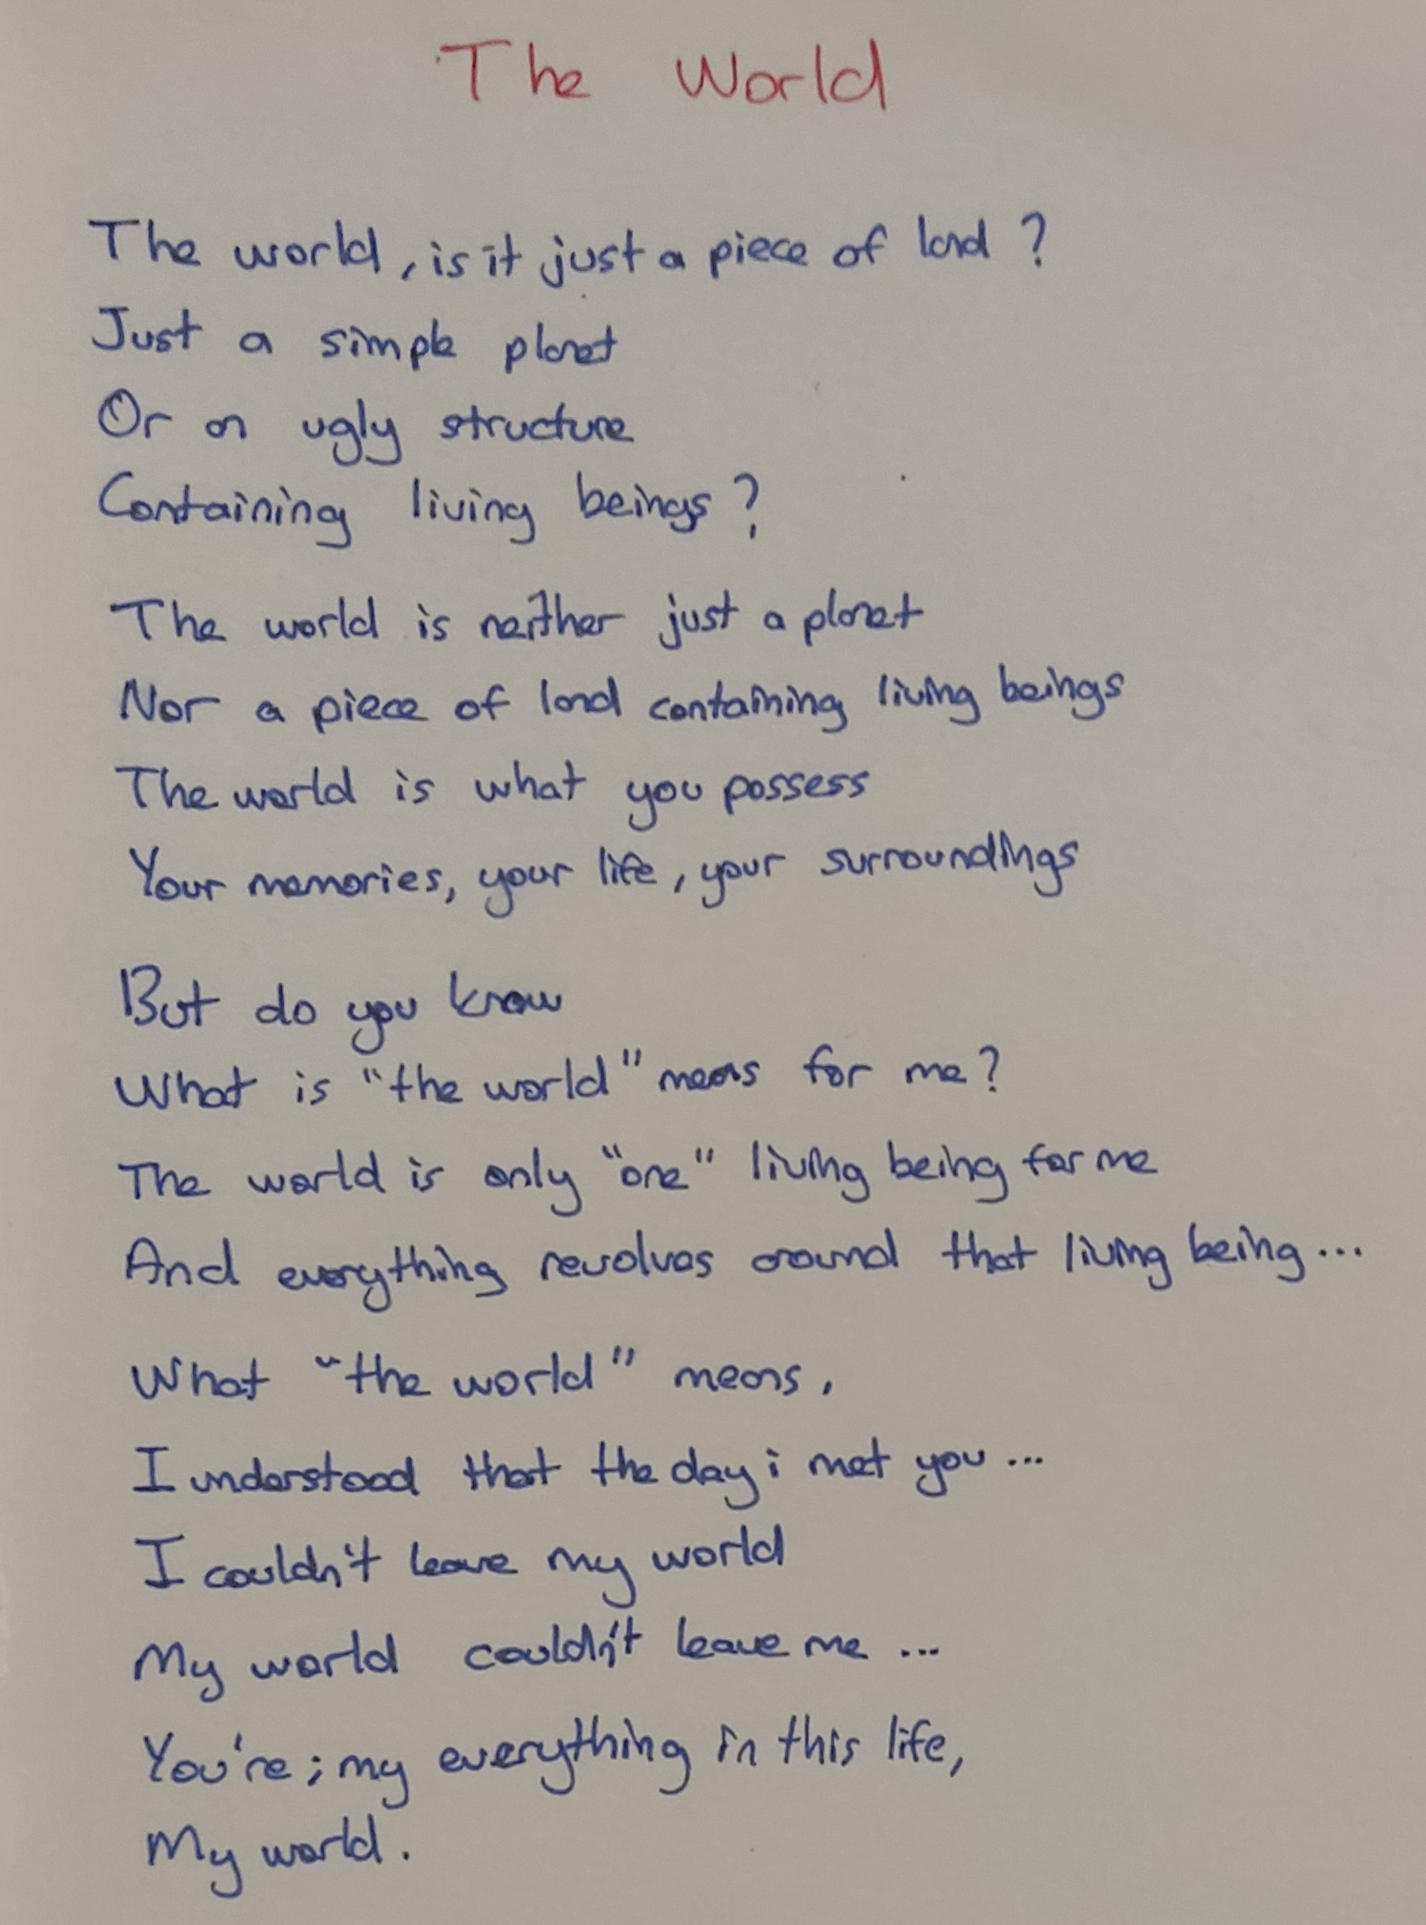 The World
The world, is it just a piece of land ?
Just a simple planet
Or an ugly structure
Containing living beings ?
The world is neither just a planet
Nor a piece of land containing living beings
The world is what you possess
Your memories, your life, your surroundings
But do you know
What is "the world" means for me?
The world is only "one" living being for me
And everything revolves around that living being...
What "the world" means,
I understood that the day i met you ...
I couldn't leave my world
My world couldn't leave me ...
You're; my everything in this life,
My world.